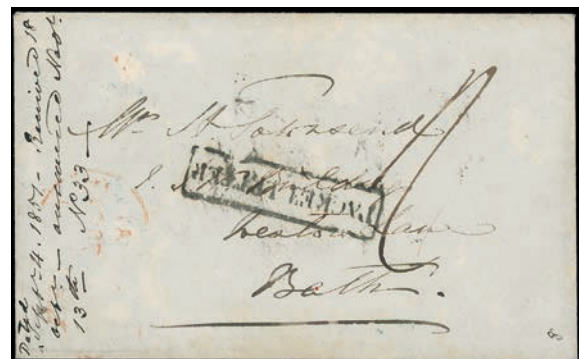 Dated
Sept 4. 1851 - Received 18
Octr - answered Novr
13th No 33 -
Mr H Townsend
PACKET LETTER
Bath.